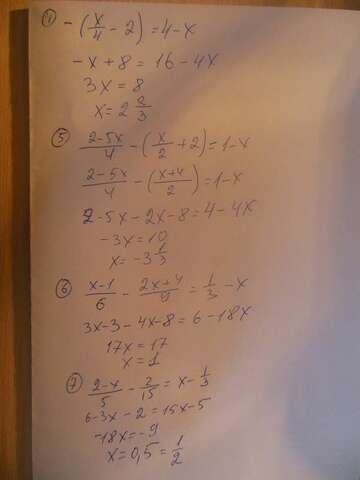 4) -(x/4 - 2) = 4-x
-x+8 = 16-4x
3x = 8
x = 2 2/3
5) (2-5x)/4 - (x/2 + 2) = 1-x
(2-5x)/4 - ((x+4)/2) = 1-x
2-5x-2x-8 = 4-4x
-3x = 10
x = -3 1/3
6) (x-1)/6 - (2x+4)/9 = 1/3 - x
3x-3-4x-8 = 6-18x
17x = 17
x = 1
7) (2-x)/5 - 2/15 = x - 1/3
6-3x-2 = 15x-5
-18x = -9
x = 0,5 = 1/2